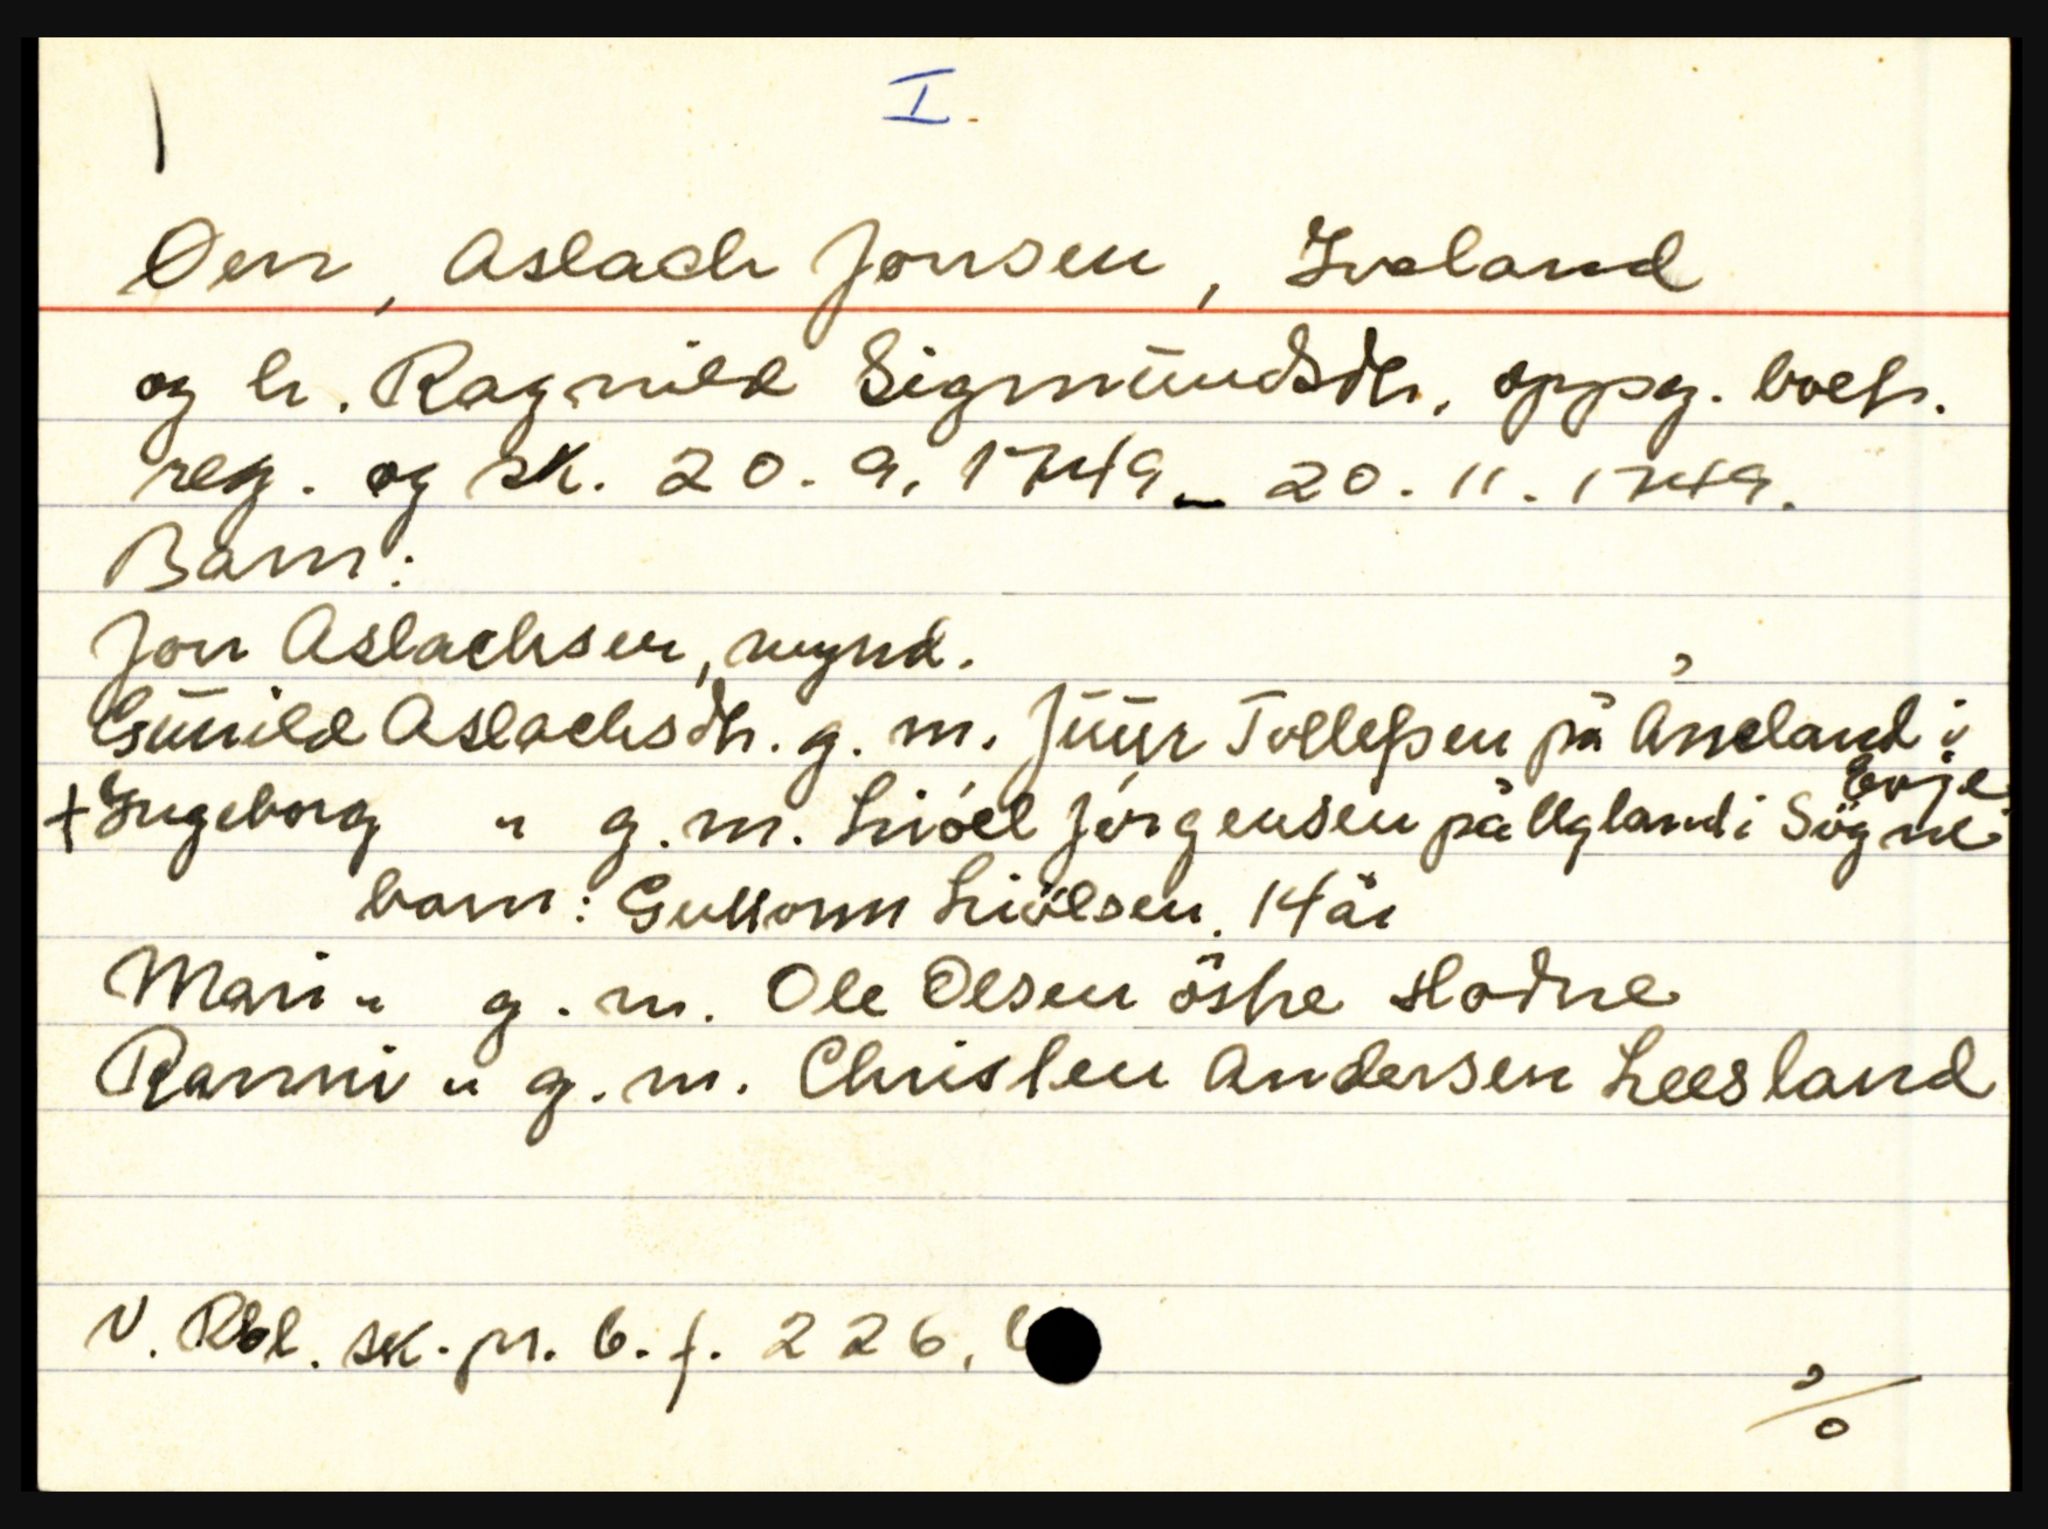 I.
Øen, Aslach Jonsen, Iveland
og h. Ragnild Sigmundsdtr. oppg. boets.
reg. og sk. 20.9.1749 - 20.11.1749.
Barn:
Jon Aslachsen, mynd.
Gunild Aslachsdtr. g. m. Tollefsen på Aneland i Evje
+ Ingeborg " g. m. Liöel Jörgensen på Ugland i Sögne
barn: Guttorm Liölsen. 14 år
Mari " g. m. Ole Olsen östre Hodne
Ranni " g. m. Christen Andersen Leesland
N. Rbl. sk. pr. 6. f. 226,